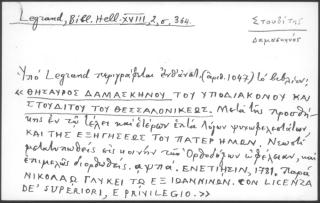 Legrand, Bibl. Hell. XVIII, 2, σ. 364.
Στουδίτης
Δαμασκηνός
Ὑπὸ Legrand περιγράφεται (ἀριθ. 1047) τὸ βιβλίον:
«ΘΗΣΑΥΡΟΣ ΔΑΜΑΣΚΗΝΟΥ ΤΟΥ ΥΠΟΔΙΑΚΟΝΟΥ ΚΑΙ
ΣΤΟΥΔΙΤΟΥ ΤΟΥ ΘΕΣΣΑΛΟΝΙΚΕΩΣ. Μετὰ τῆς προσθή-
κης ἐν τῷ τέλει καὶ ἑτέρων ἑπτὰ λόγων ψυχωφελεστάτων
ΚΑΙ ΤΗΣ ΕΞΗΓΗΣΕΩΣ ΤΟΥ ΠΑΤΕΡ ΗΜΩΝ. Νεωστὶ
μετατυπωθεὶς εἰς κοινὴν τῶν Ὀρθοδόξων ὠφέλειαν, καὶ
ἐπιμελῶς διορθωθείς. αψπα. ΕΝΕΤΙΗΣΙΝ, 1781. ΠΑΡΑ
ΝΙΚΟΛΑΩ ΓΛΥΚΕΙ ΤΩ ΕΞ ΙΩΑΝΝΙΝΩΝ. CON LICENZA
DE' SUPERIORI, E PRIVILEGIO.»